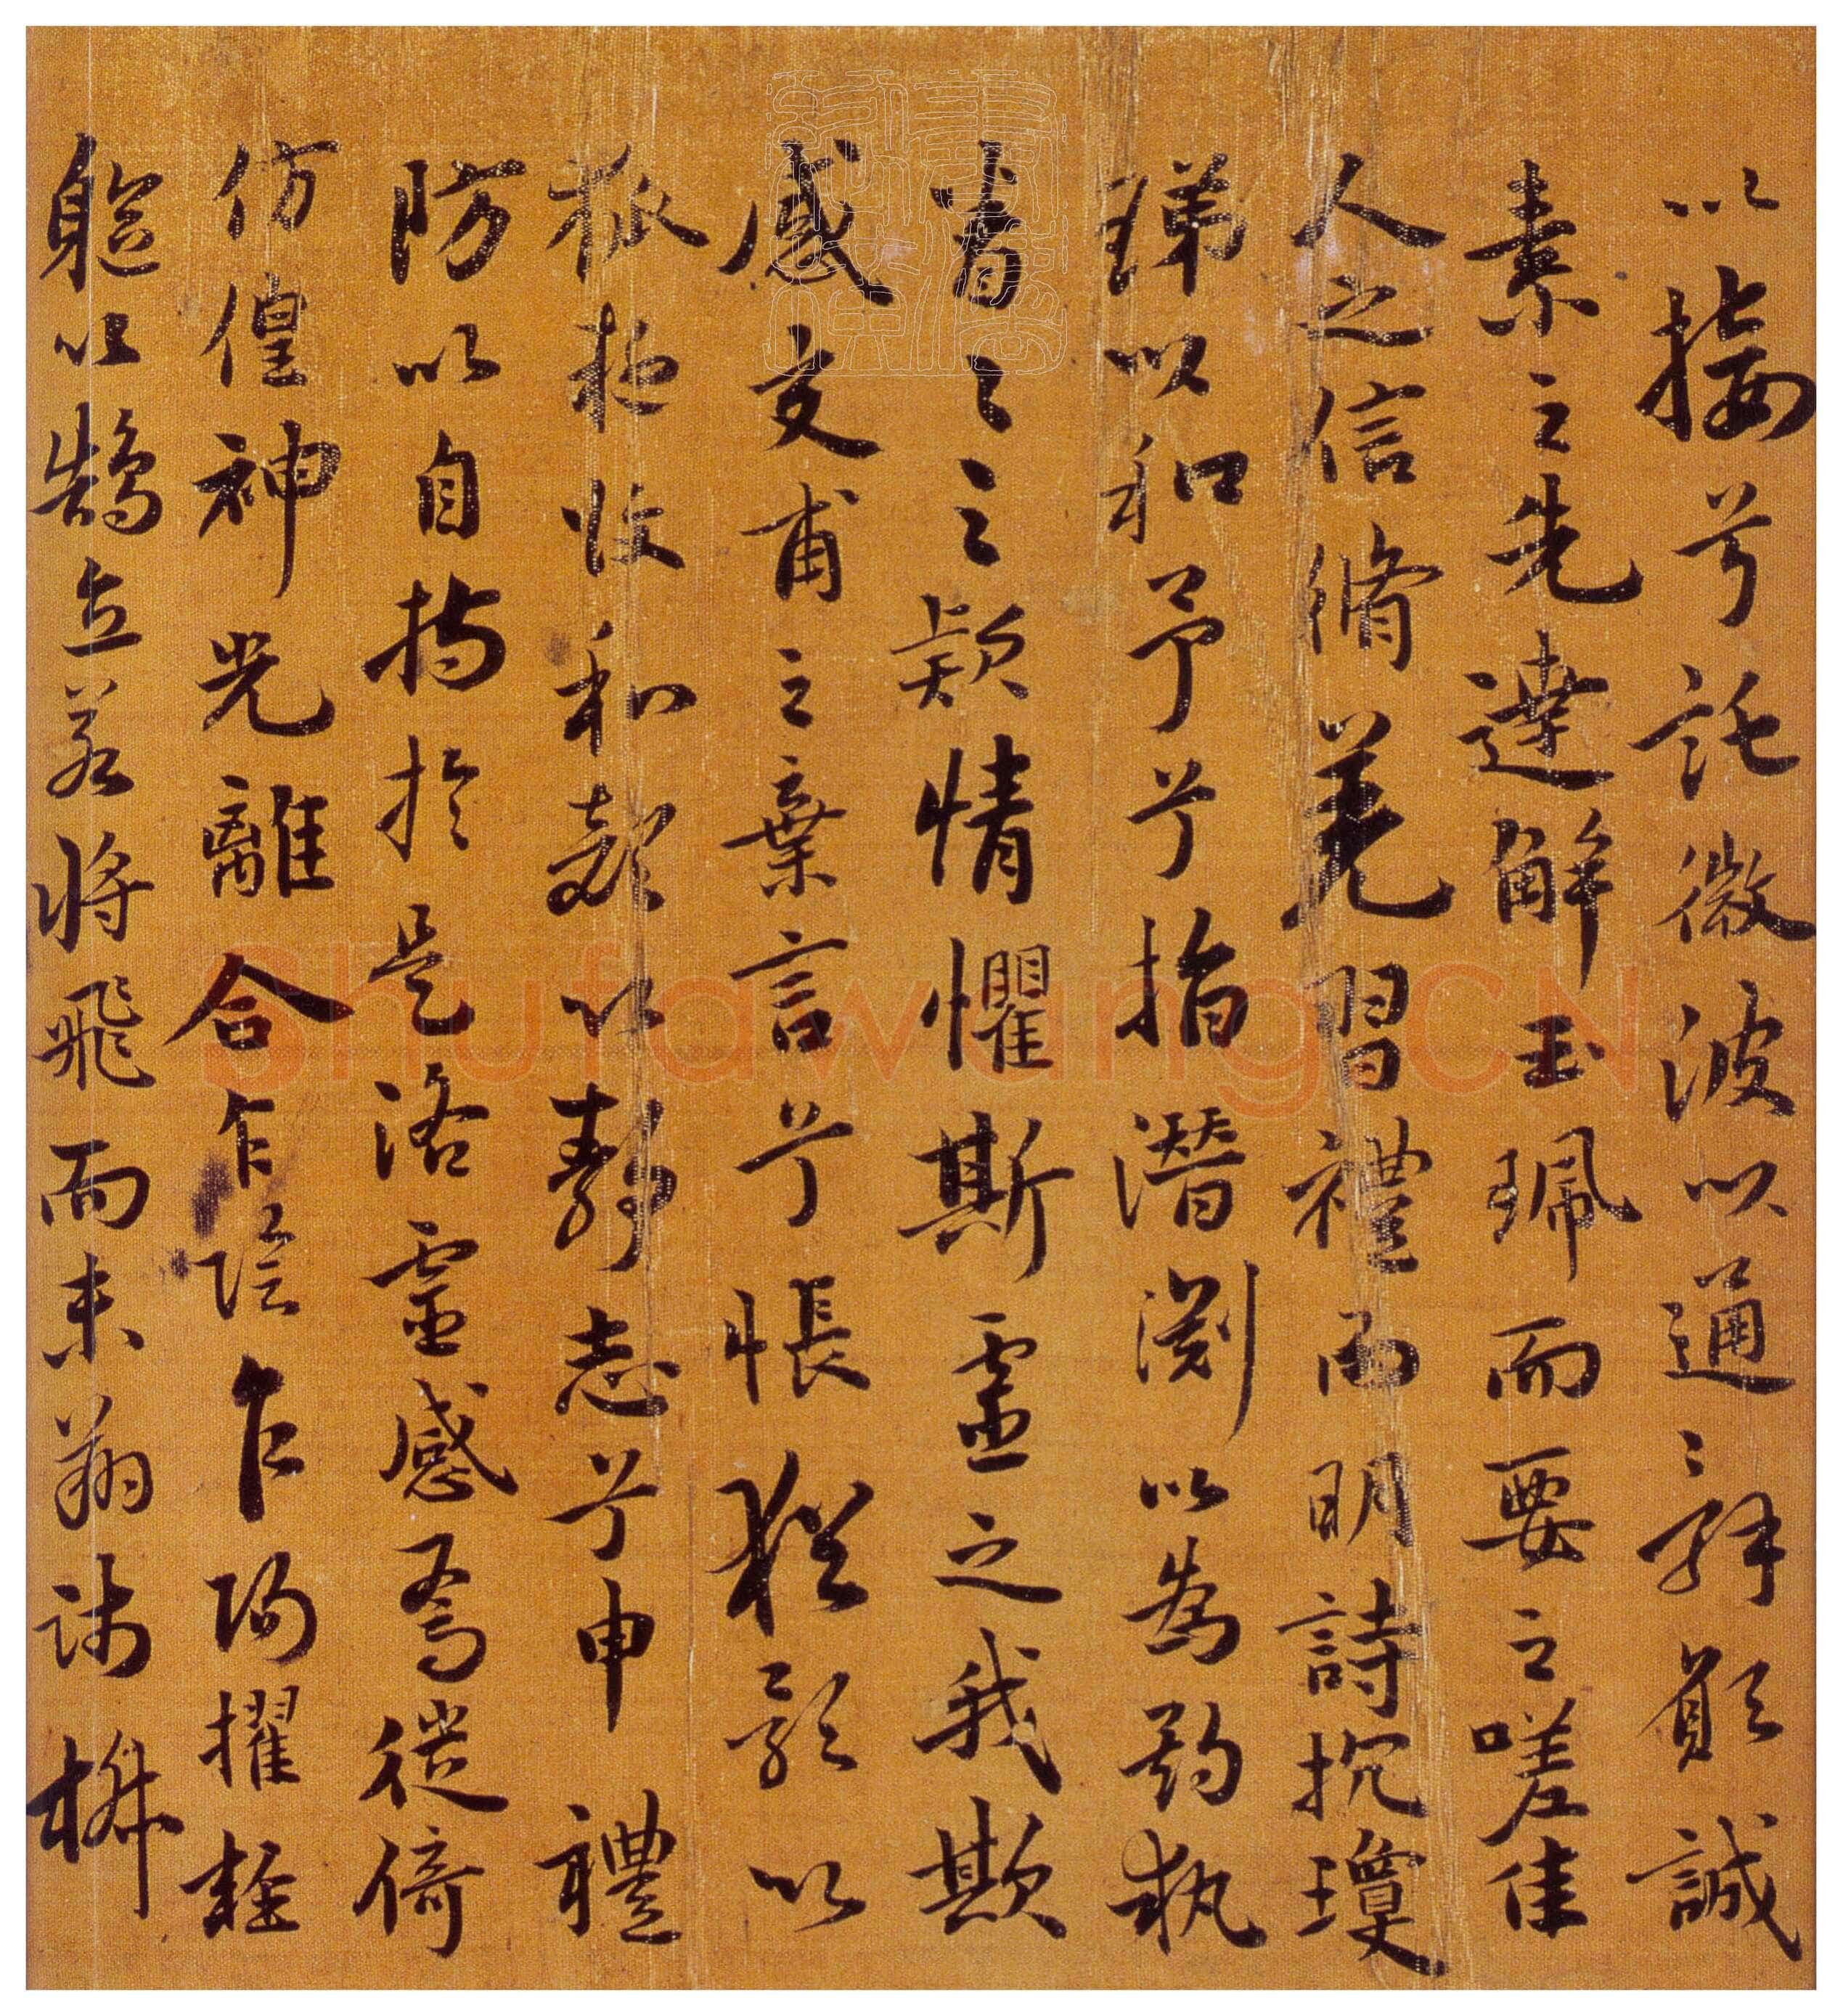 以接兮託微波以通〻辞願誠
素之先達解玉珮而要之嗟佳
人之信脩羌習禮而明詩抗瓊
珶以和予兮指潛渕以為期執
眷〻之欵情懼斯靈之我欺
感交甫之棄言兮悵猶豫以
狐疑收和顏以靜志兮申禮
防以自持於是洛靈感焉徙倚
仿偟神光離合乍陰乍陽擢輕
軀以鵠立若將飛而未翔踐椒
Shufawang.CN